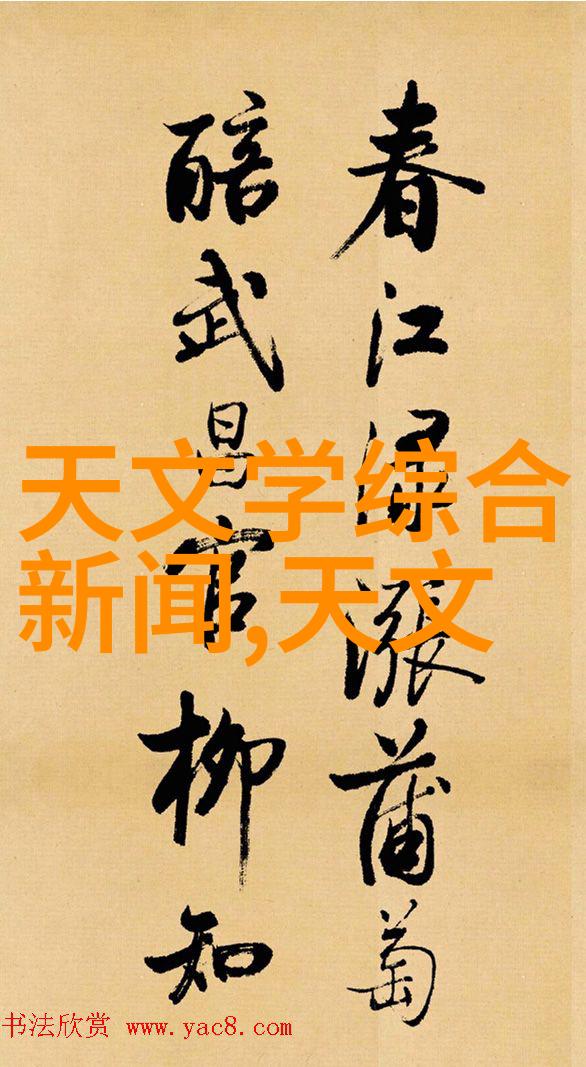 春江渌涨蒲萄
醅武昌官柳知
天文学综合
新闻,天文
书法欣赏 www.yac8.com